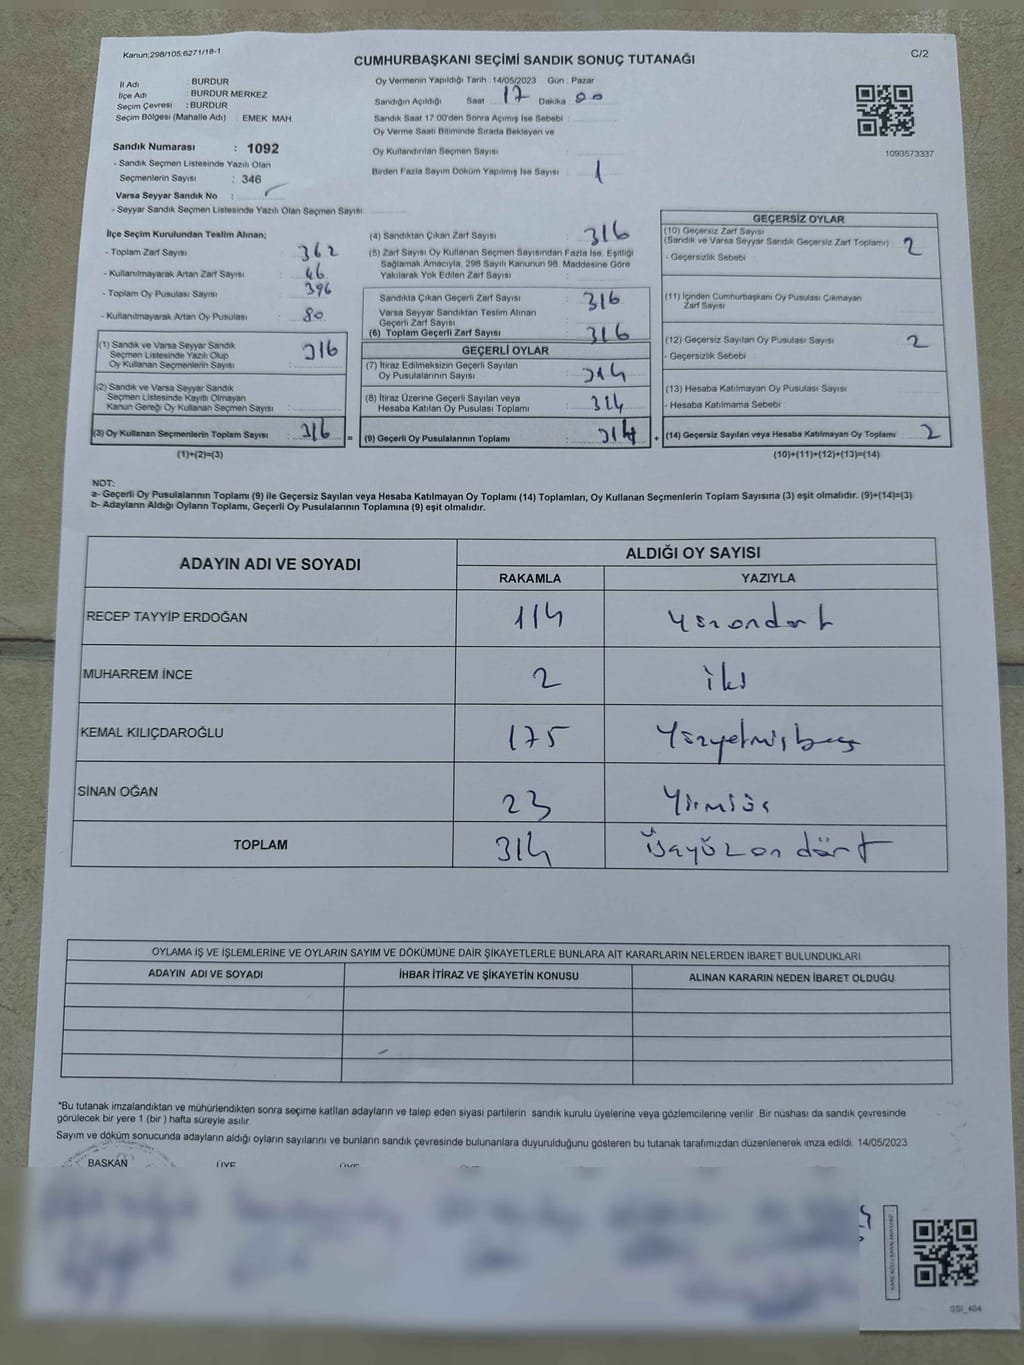 Kanun:298/105,6271/18-1
C/2
CUMHURBAŞKANI SEÇİMİ SANDIK SONUÇ TUTANAĞI
İl Adı : BURDUR
İlçe Adı : BURDUR MERKEZ
Seçim Çevresi : BURDUR
Seçim Bölgesi (Mahalle Adı) : EMEK MAH.
Sandık Numarası : 1092
- Sandık Seçmen Listesinde Yazılı Olan
Seçmenlerin Sayısı : 346
Varsa Seyyar Sandık No :
- Seyyar Sandık Seçmen Listesinde Yazılı Olan Seçmen Sayısı
Oy Vermenin Yapıldığı Tarih : 14/05/2023 Gün : Pazar
Sandığın Açıldığı Saat : 17 Dakika : 00
Sandık Saat 17:00'den Sonra Açımış İse Sebebi :
Oy Verme Saati Bitiminde Sırada Bekleyen ve
Oy Kullandırılan Seçmen Sayısı :
Birden Fazla Sayım Döküm Yapılmış İse Sayısı : 1
1093573337
İlçe Seçim Kurulundan Teslim Alınan;
- Toplam Zarf Sayısı : 362
- Kullanılmayarak Artan Zarf Sayısı : 46
- Toplam Oy Pusulası Sayısı : 396
- Kullanılmayarak Artan Oy Pusulası : 80
(1) Sandık ve Varsa Seyyar Sandık
Seçmen Listesinde Yazılı Olup
Oy Kullanan Seçmenlerin Sayısı : 316
(2) Sandık ve Varsa Seyyar Sandık
Seçmen Listesinde Kayıtlı Olmayan
Kanun Gereği Oy Kullanan Seçmen Sayısı :
(3) Oy Kullanan Seçmenlerin Toplam Sayısı : 316 =
(1)+(2)=(3)
(4) Sandıktan Çıkan Zarf Sayısı : 316
(5) Zarf Sayısı Oy Kullanan Seçmen Sayısından Fazla İse, Eşitliği
Sağlamak Amacıyla, 298 Sayılı Kanunun 98. Maddesine Göre
Yakılarak Yok Edilen Zarf Sayısı :
Sandıkta Çıkan Geçerli Zarf Sayısı : 316
Varsa Seyyar Sandıktan Teslim Alınan
Geçerli Zarf Sayısı :
(6) Toplam Geçerli Zarf Sayısı : 316
GEÇERLİ OYLAR
(7) İtiraz Edilmeksizin Geçerli Sayılan
Oy Pusulalarının Sayısı : 314
(8) İtiraz Üzerine Geçerli Sayılan veya
Hesaba Katılan Oy Pusulası Toplamı : 314
(9) Geçerli Oy Pusulalarının Toplamı : 314 +
GEÇERSİZ OYLAR
(10) Geçersiz Zarf Sayısı
(Sandık ve Varsa Seyyar Sandık Geçersiz Zarf Toplamı) : 2
- Geçersizlik Sebebi :
(11) İçinden Cumhurbaşkanı Oy Pusulası Çıkmayan
Zarf Sayısı :
(12) Geçersiz Sayılan Oy Pusulası Sayısı : 2
- Geçersizlik Sebebi :
(13) Hesaba Katılmayan Oy Pusulası Sayısı :
- Hesaba Katılmama Sebebi :
(14) Geçersiz Sayılan veya Hesaba Katılmayan Oy Toplamı : 2
(10)+(11)+(12)+(13)=(14)
NOT:
a- Geçerli Oy Pusulalarının Toplamı (9) ile Geçersiz Sayılan veya Hesaba Katılmayan Oy Toplamı (14) Toplamları, Oy Kullanan Seçmenlerin Toplam Sayısına (3) eşit olmalıdır. (9)+(14)=(3)
b- Adayların Aldığı Oyların Toplamı, Geçerli Oy Pusulalarının Toplamına (9) eşit olmalıdır.
ADAYIN ADI VE SOYADI
ALDIĞI OY SAYISI
RAKAMLA YAZIYLA
RECEP TAYYİP ERDOĞAN 114 Yüzondört
MUHARREM İNCE 2 iki
KEMAL KILIÇDAROĞLU 175 Yüzyetmişbeş
SİNAN OĞAN 23 Yirmiüç
TOPLAM 314 Üçyüzondört
OYLAMA İŞ VE İŞLEMLERİNE VE OYLARIN SAYIM VE DÖKÜMÜNE DAİR ŞİKAYETLERLE BUNLARA AİT KARARLARIN NELERDEN İBARET BULUNDUKLARI
ADAYIN ADI VE SOYADI İHBAR İTİRAZ VE ŞİKAYETİN KONUSU ALINAN KARARIN NEDEN İBARET OLDUĞU
*Bu tutanak imzalandıktan ve mühürlendikten sonra seçime katılan adayların ve talep eden siyasi partilerin sandık kurulu üyelerine veya gözlemcilerine verilir. Bir nüshası da sandık çevresinde
görülecek bir yere 1 (bir) hafta süreyle asılır.
Sayım ve döküm sonucunda adayların aldığı oyların sayılarını ve bunların sandık çevresinde bulunanlara duyurulduğunu gösteren bu tutanak tarafımızdan düzenlenerek imza edildi. 14/05/2023
BAŞKAN ÜYE ÜYE
SSI_404